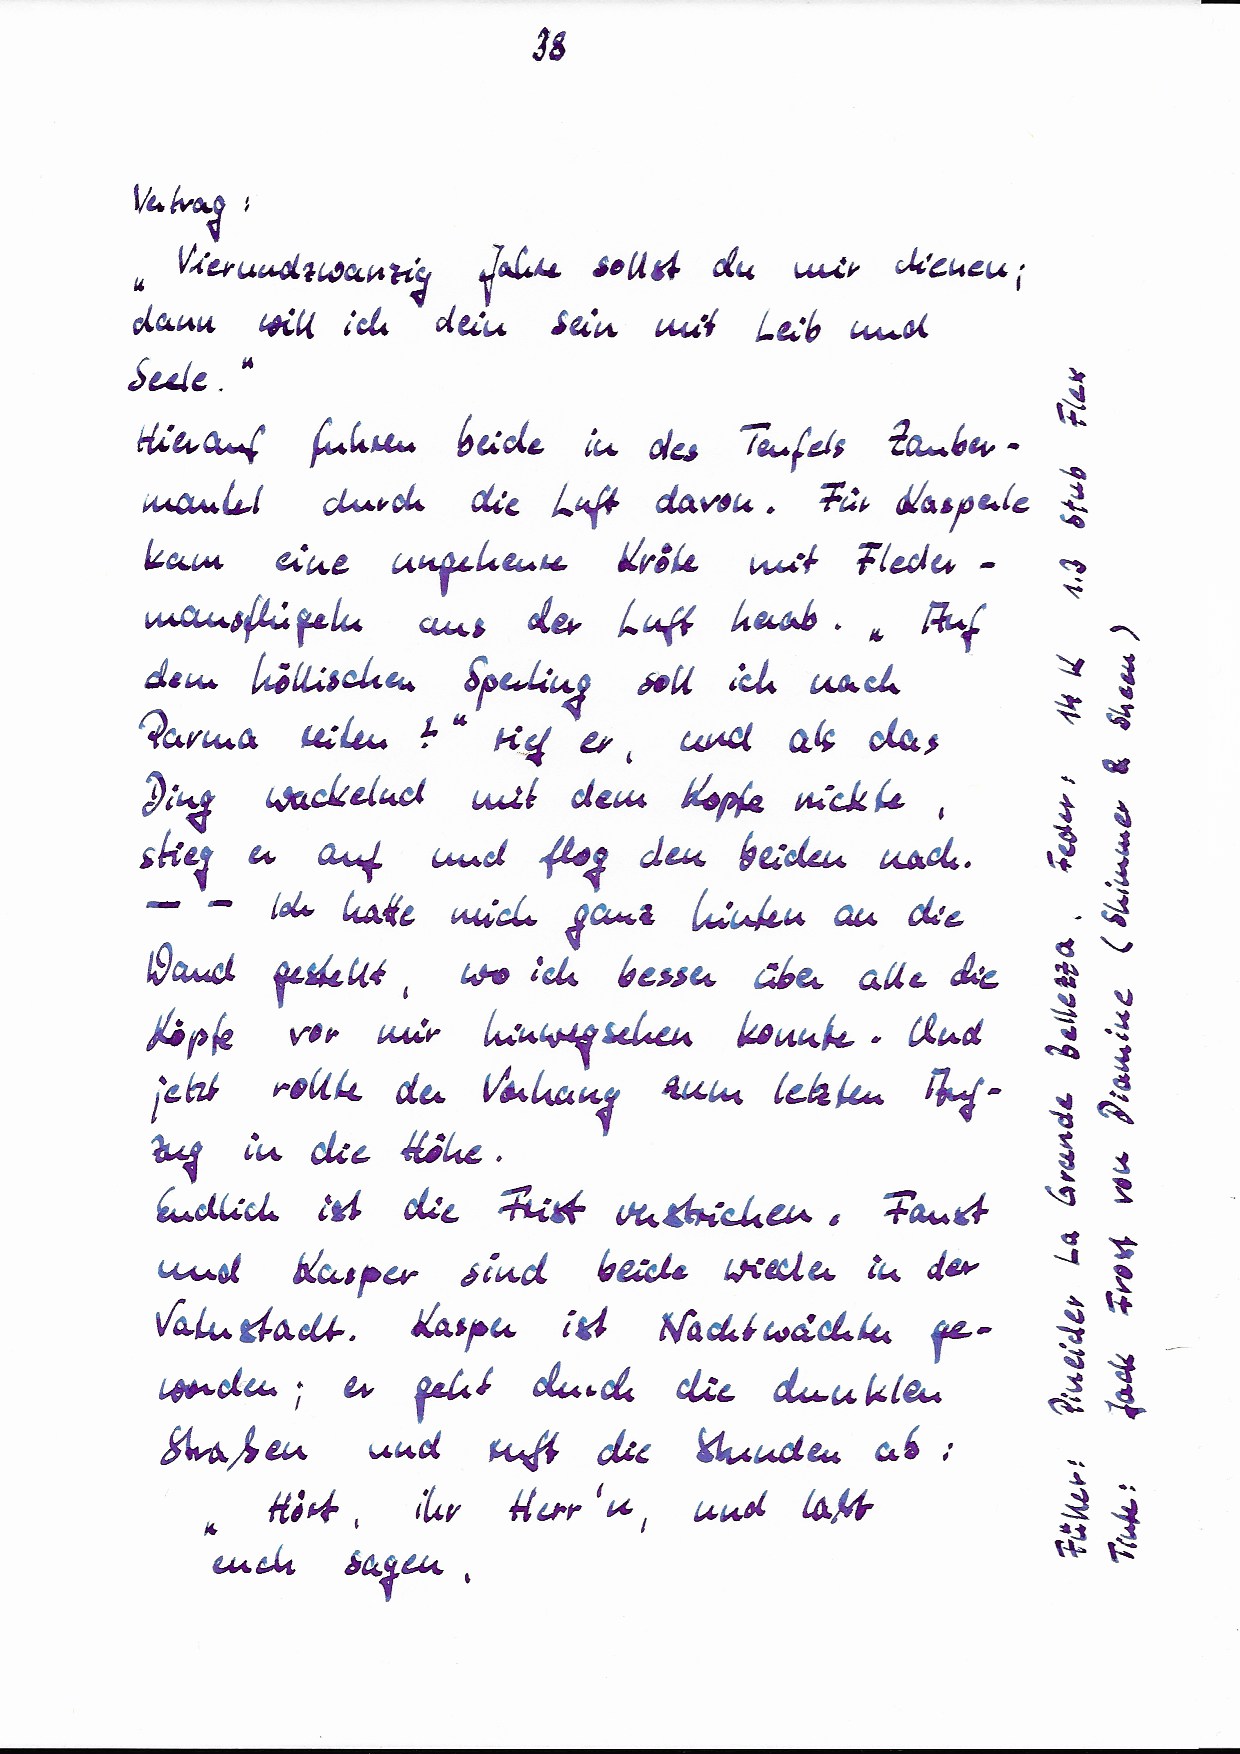 38
Vertrag:
„Vierundzwanzig Jahre sollst du mir dienen;
dann will ich dein sein mit Leib und
Seele."
Hierauf fuhren beide in des Teufels Zauber-
mantel durch die Luft davon. Für Kasperle
kam eine ungeheure Kröte mit Fleder-
mausflügeln aus der Luft herab. „Auf
dem höllischen Sperling soll ich nach
Parma reiten?" rief er, und als das
Ding wackelnd mit dem Kopfe nickte,
stieg er auf und flog den beiden nach.
— – Ich hatte mich ganz hinten an die
Wand gestellt, wo ich besser über alle die
Köpfe vor mir hinwegsehen konnte. Und
jetzt rollte der Vorhang zum letzten Auf-
zug in die Höhe.
Endlich ist die Frist verstrichen. Faust
und Kasper sind beide wieder in der
Vaterstadt. Kasper ist Nachtwächter ge-
worden; er geht durch die dunklen
Straßen und ruft die Stunden ab:
„Hört, ihr Herr'n, und laßt
euch sagen,
Füller: Pineider La Grande Bellezza. Feder: 14 K 1.3 Stub Flex
Tinte: Jack Frost von Diamine (Shimmer & Sheen)